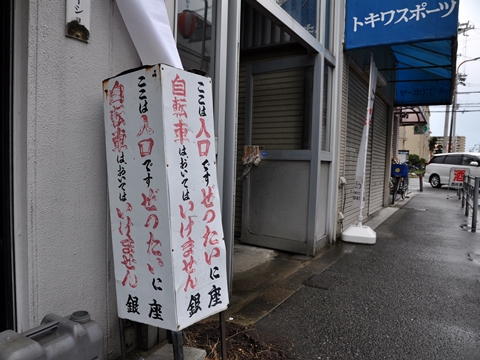 トキワスポーツ
ここは入口ですぜったいに
自転車はおいてはいけません
銀座
ここは入口ですぜったいに
自転車はおいてはいけません
銀座
酒